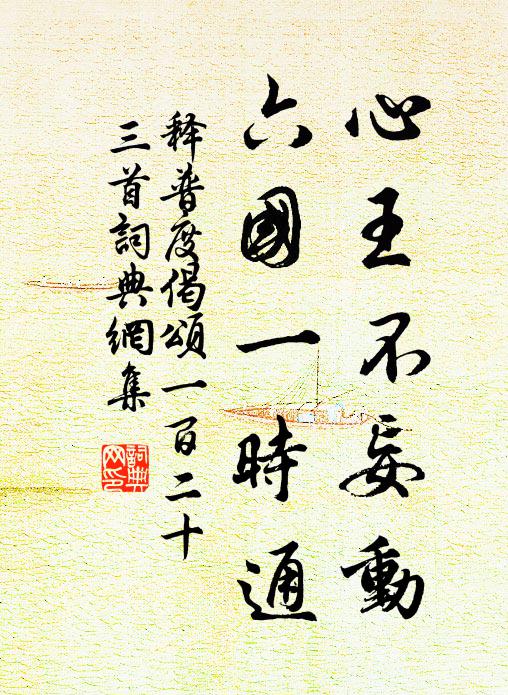 心王不妄動
六國一時通
释普度偈頌一百二十
三首詞典網集
詞典
网印